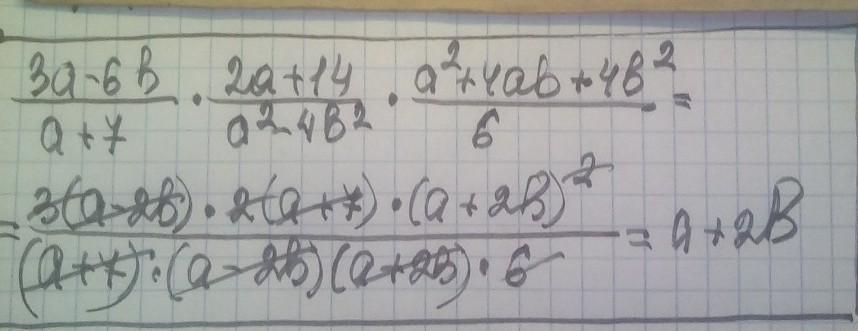 (3a-6b)/(a+7) · (2a+14)/(a²-4b²) · (a²+4ab+4b²)/6 =
= (3(a-2b)·2(a+7)·(a+2b)²)/((a+7)·(a-2b)(a+2b)·6) = a+2b